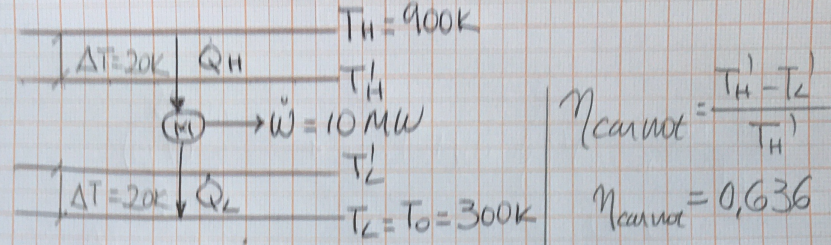 TH = 900K
ΔT = 20K
QH
TH'
M
Ẇ = 10 MW
TL'
ΔT = 20K
QL
TL = T0 = 300K
ηcarnot = TH' - TL'
TH'
ηcarnot = 0,636